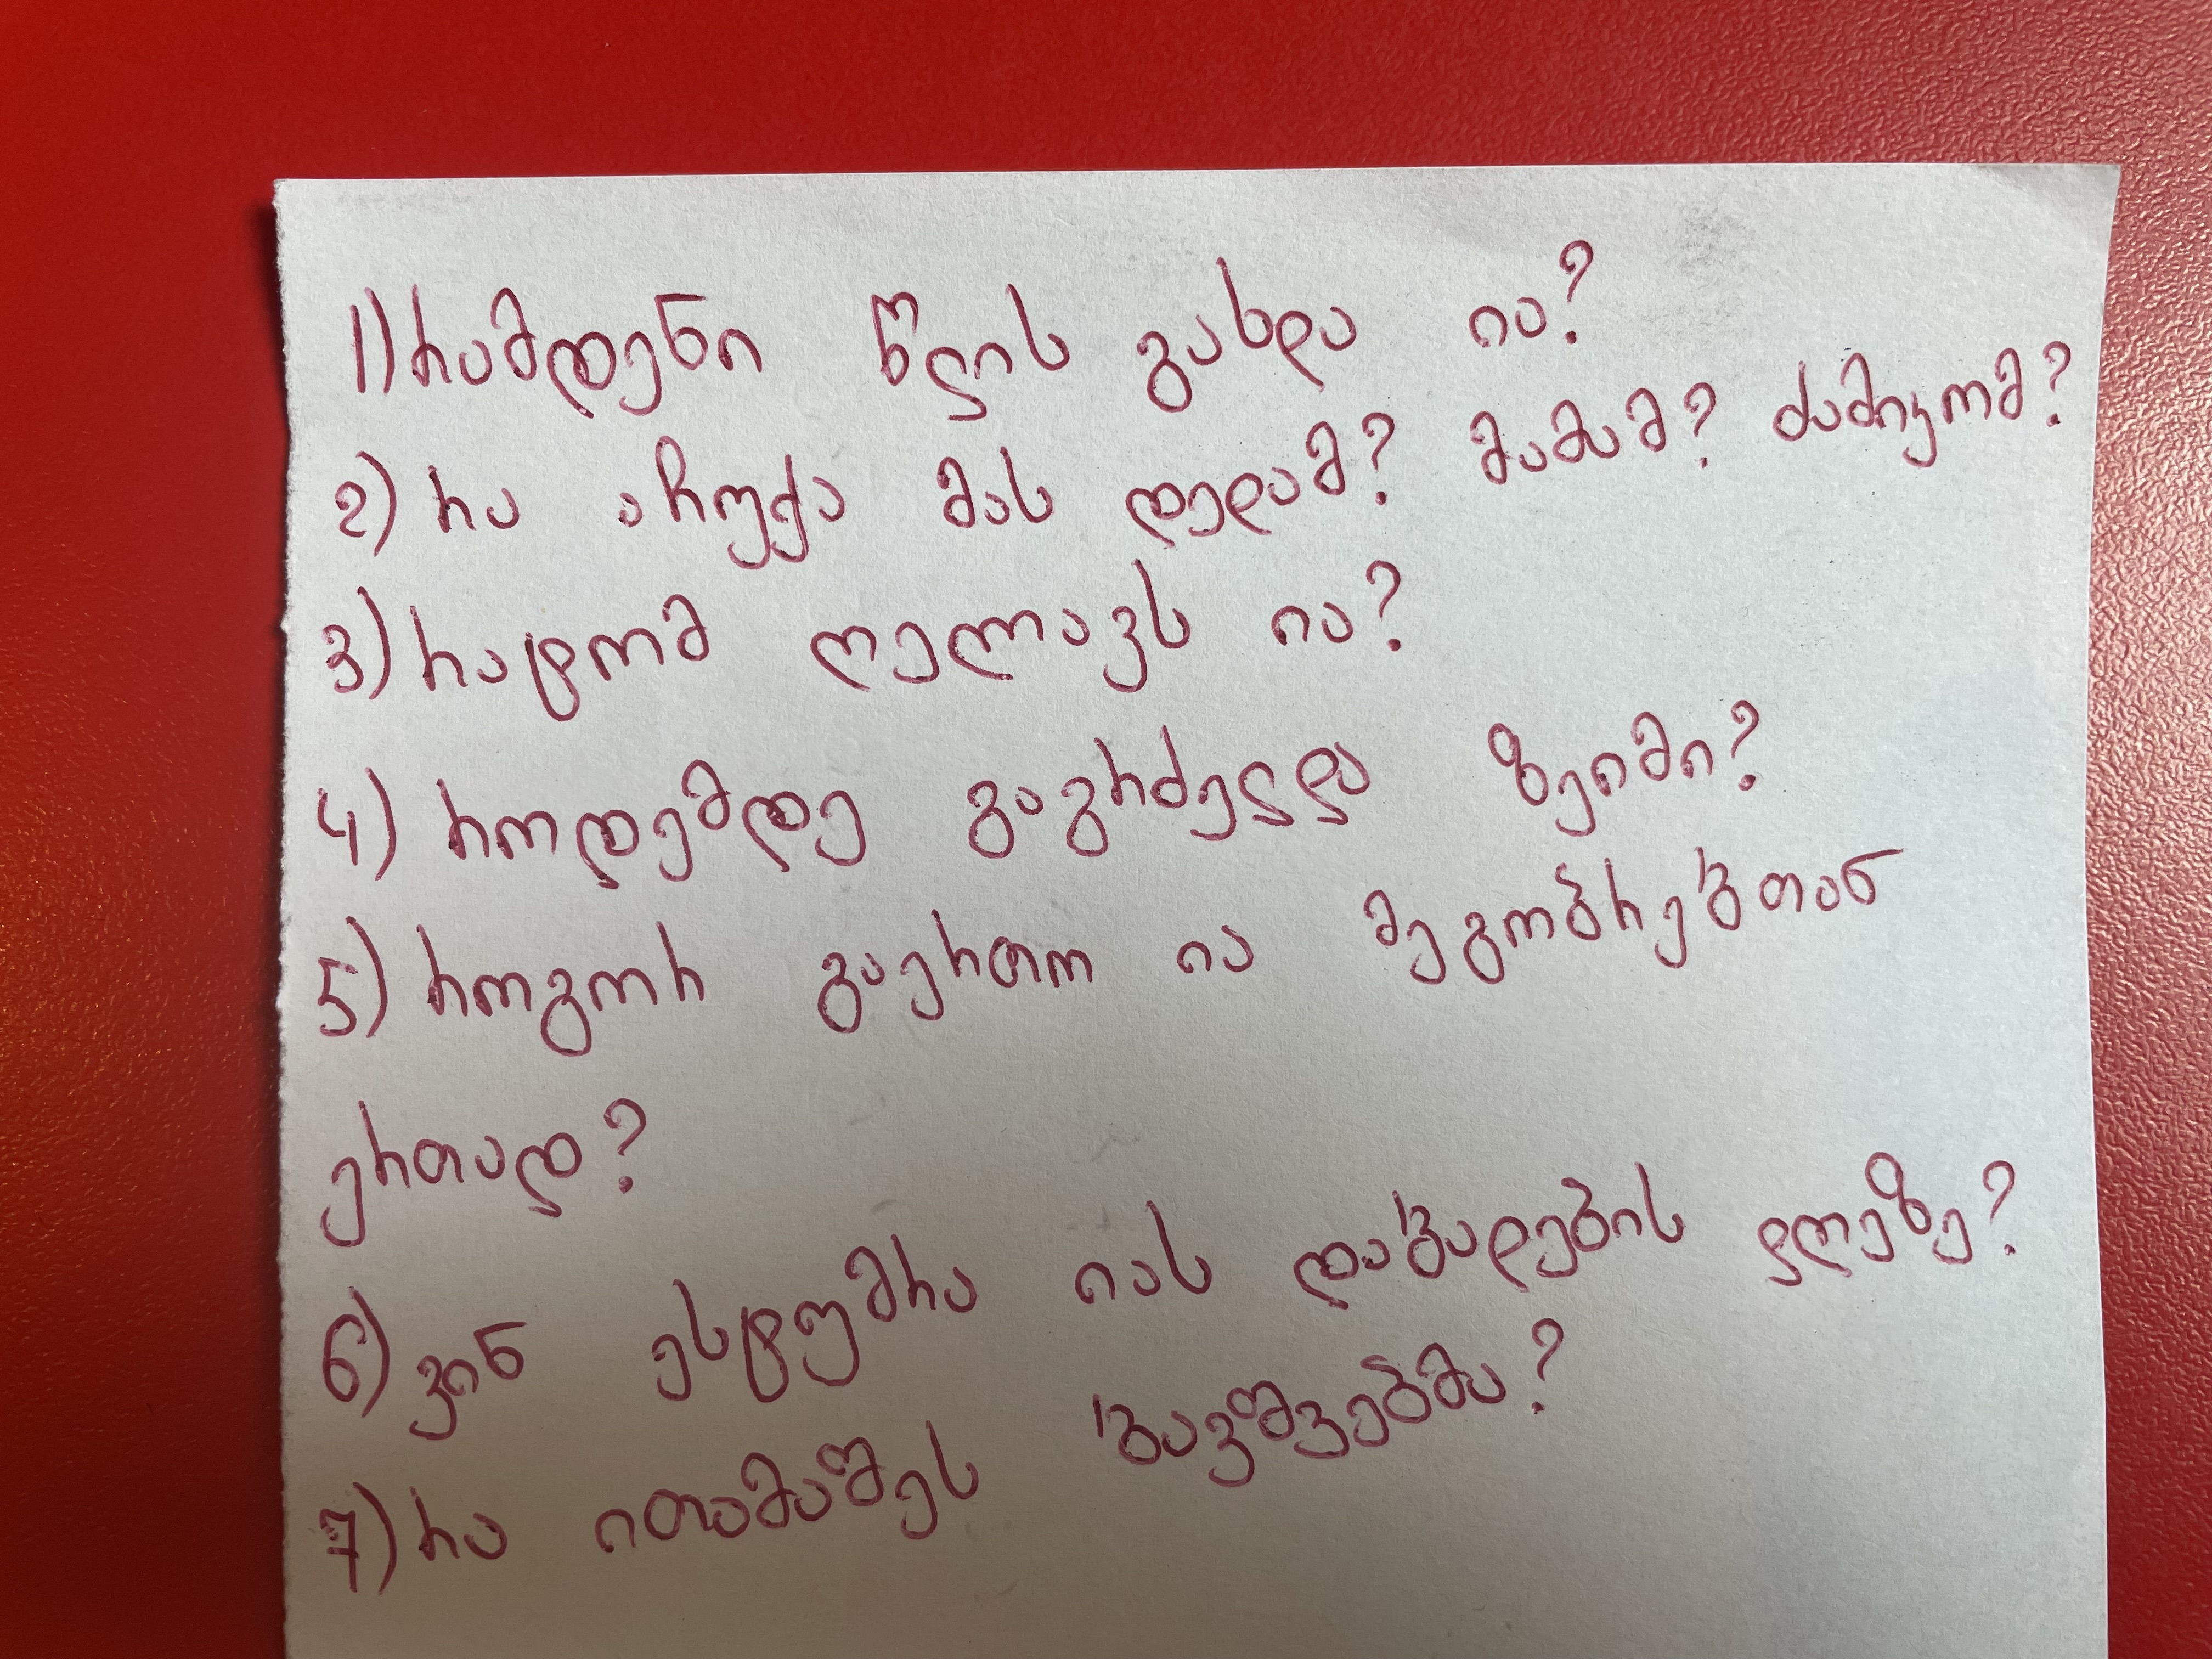 1) რამდენი წლის გახდა ია?
2) რა აჩუქა მას დედამ? მამამ? ძამიკომ?
3) რატომ ღელავს ია?
4) როდემდე გაგრძელდა ზეიმი?
5) როგორ გაერთო ია მეგობრებთან
ერთად?
6) ვინ ესტუმრა იას დაბადების დღეზე?
7) რა ითამაშეს ბავშვებმა?